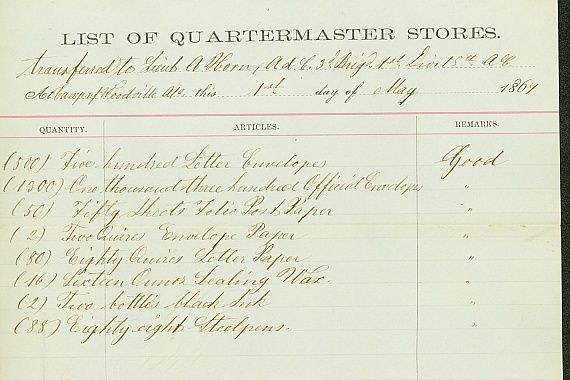 LIST OF QUARTERMASTER STORES.
transferred to Lieut A Horn, A d C. 3d Brig 1st Div 15th A C
At Camp nr Woodville Ala this 1st day of May 1864
QUANTITY. ARTICLES. REMARKS.
(500) Five hundred Letter Envelopes Good
(1300) One thousand three hundred Official Envelopes "
(50) Fifty Sheets Folio Post Paper "
(2) Two Quires Envelope Paper "
(80) Eighty Quires Letter Paper "
(16) Sixteen Ounces Sealing Wax. "
(2) Two bottles black Ink "
(88) Eighty eight Steelpens. "